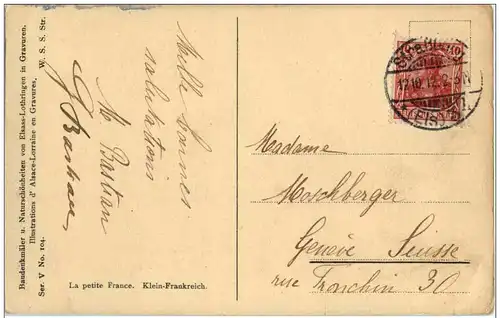 Baudenkmäler u. Naturschönheiten von Elsass-Lothringen in Gravuren.
Illustrations d' Alsace-Lorraine en Gravures. W. S. S. Str.
Ser. V No. 104.
Mille bonnes
salutations
M. Bastian
Bastian
La petite France. Klein-Frankreich.
10
17.10.12
(ELS)
Madame
Moschberger
Genève Suisse
rue 30